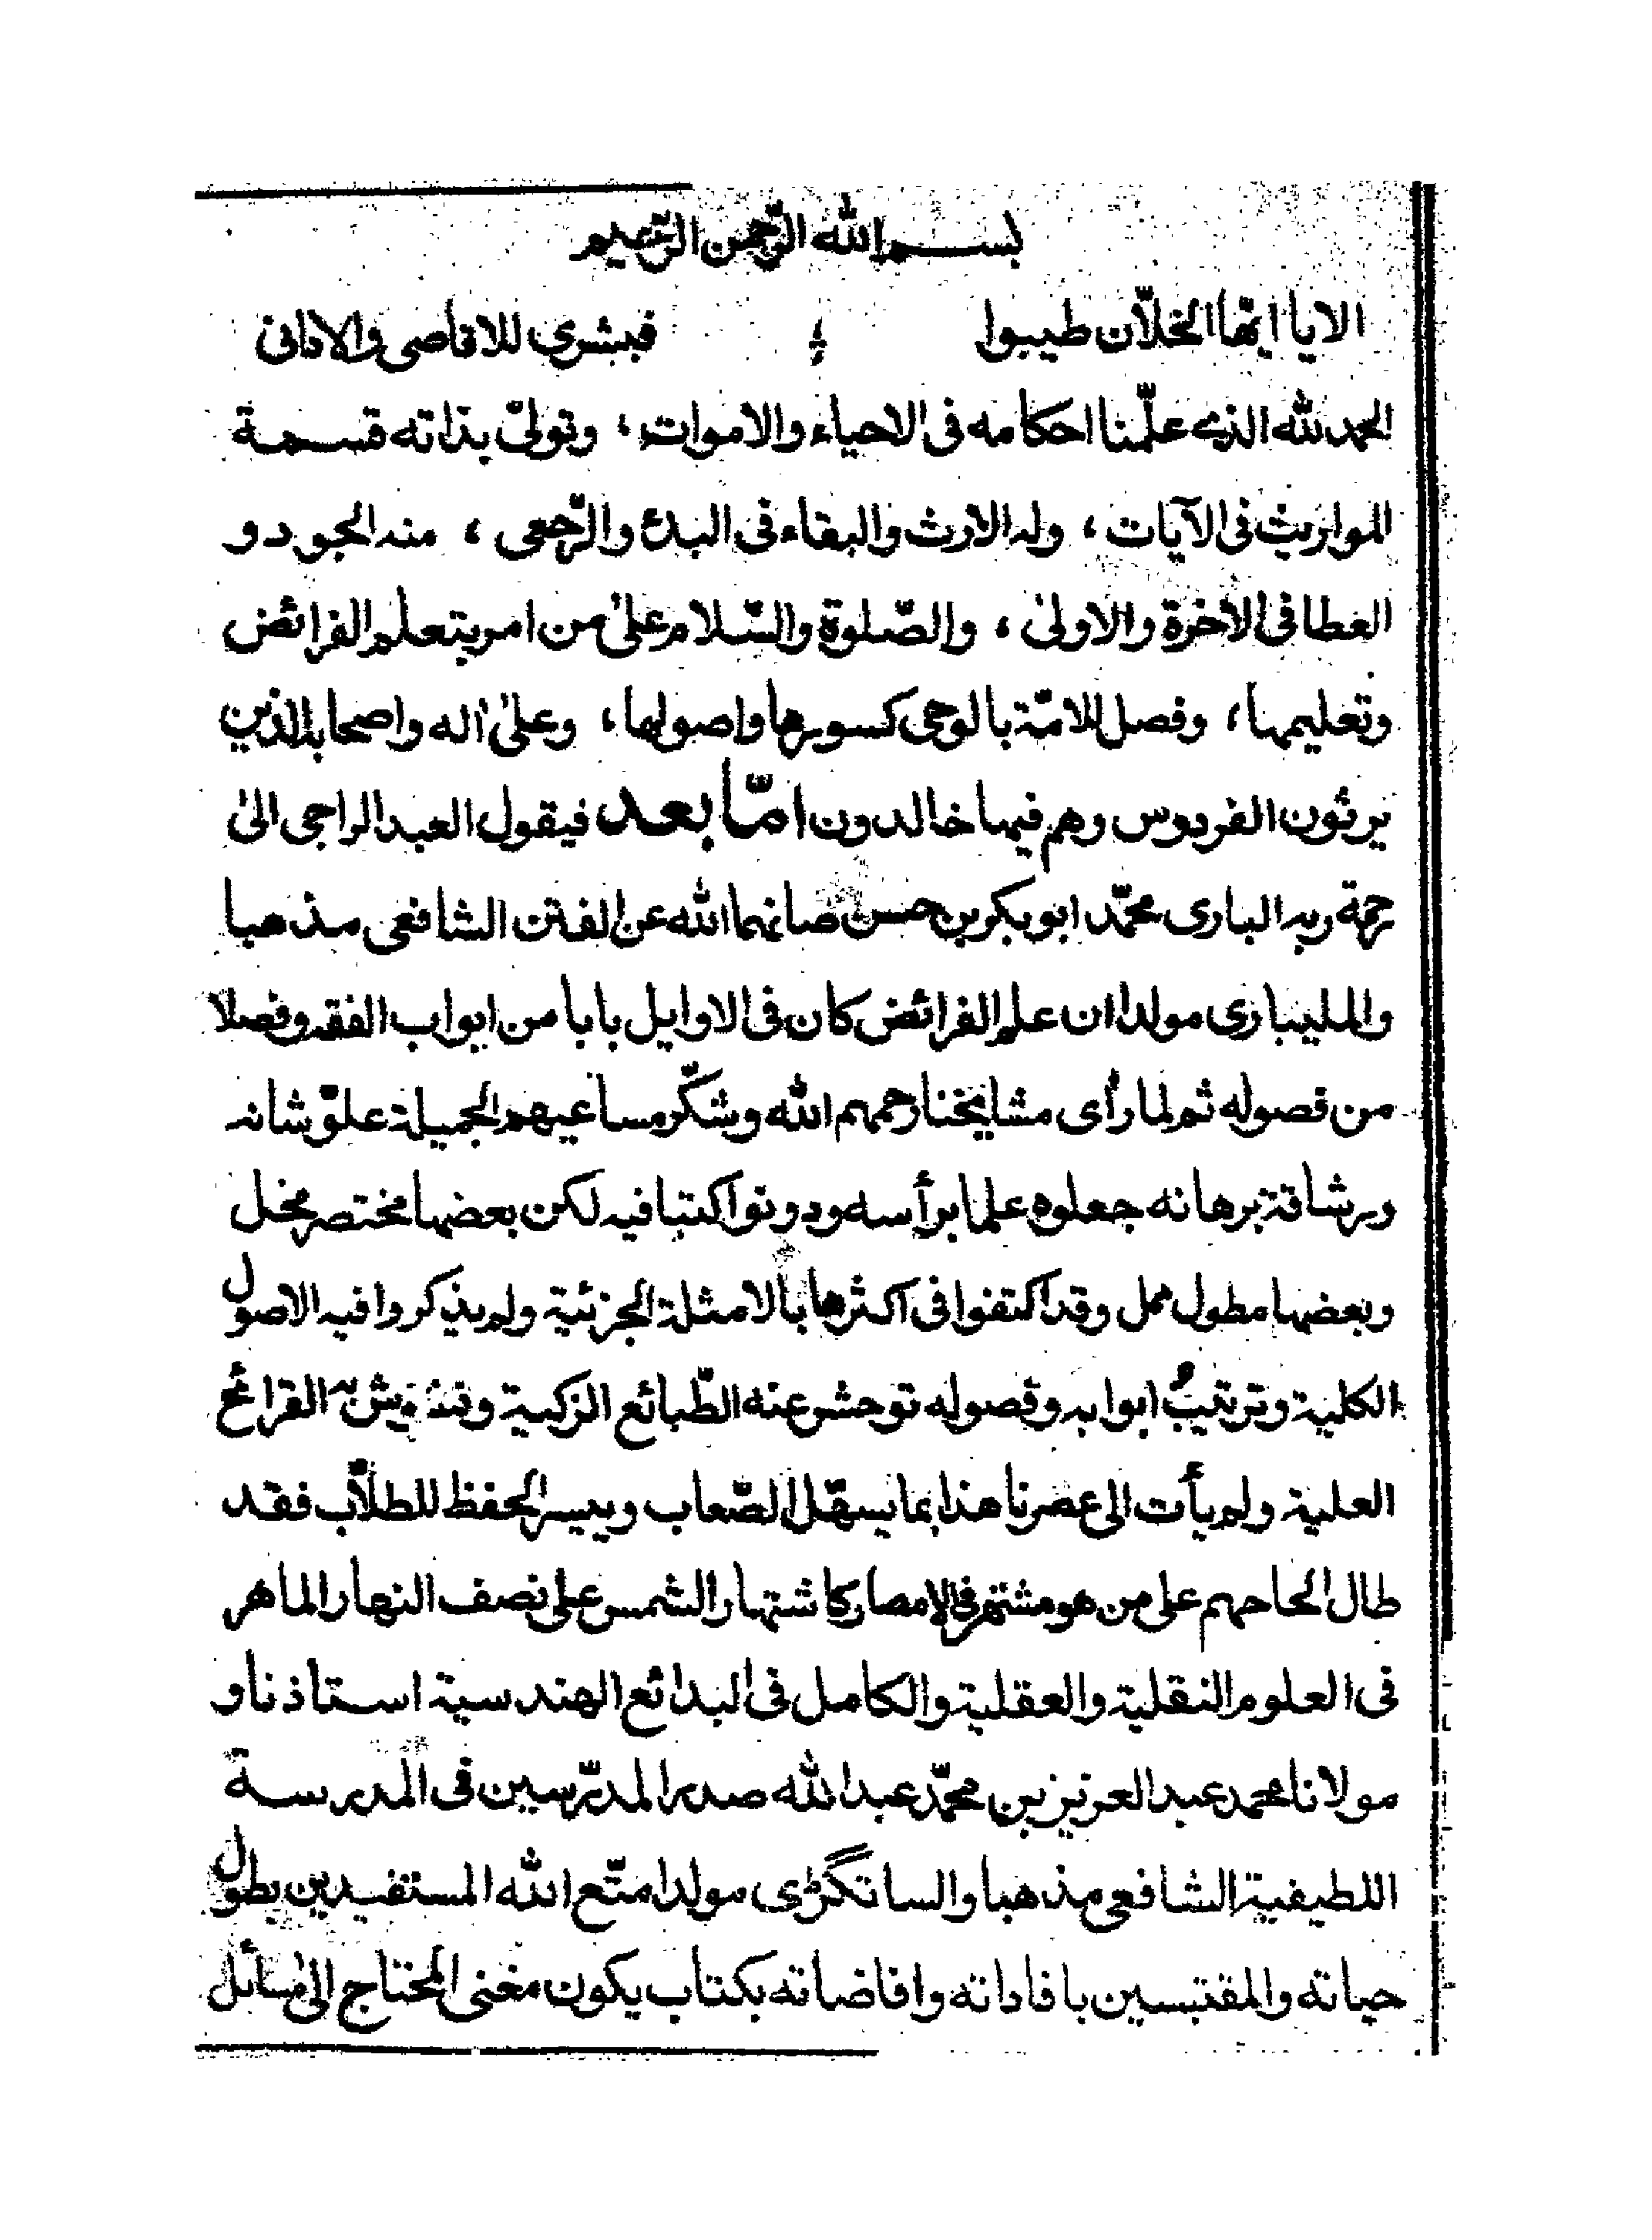 بسم الله الرّحمن الرّحيم
الا يا ايّها الخلاّن طيبوا ؞ فبشرى للاقاصى والادانى
الحمد لله الذى علّمنا احكامه فى الاحياء والاموات، وتولىّ بذاته قسمة
المواريث فى الآيات، وله الارث والبقاء فى البدء والرّجعى، منه الجود و
العطا فى الآخرة والاولىٰ، والصّلوة والسّلام علىٰ من امر بتعلم الفرائض
وتعليمها، وفصل للامّة بالوحى كسورها واصولها، وعلىٰ اٰله واصحابه الذين
يرثون الفردوس وهم فيها خالدون امّا بعد فيقول العبد الراجى الىٰ
رحمة ربه البارى محمّد ابو بكر بن حسن صانهما الله عن الفتن الشافعى مذهبا
والمليبارى مولدا ان علم الفرائض كان فى الاوايل بابا من ابواب الفقه وفصلا
من فصوله ثم لما رأى مشايخنا رحمهم الله وشكّر مساعيهم الجميلة علوّ شانه
ورشاقة برهانه جعلوه علما برأسه ودونوا كتبا فيه لكن بعضها مختصر مخل
وبعضها مطول ممل وقد اكتفوا فى اكثرها بالامثلة الجزئية ولم يذكروا فيه الاصول
الكلية وترتيبُ ابوابه وفصوله توحش عنه الطّبائع الزكية القرائح
العلية ولم يأت الى عصرنا هذا بما يسهّل الصّعاب وييسر الحفظ للطلاّب فقد
طال الحاحهم على من هو مشتهر فى الامصار كاشتهار الشمس على نصف النهار الماهر
فى العلوم النقلية والعقلية والكامل فى البدائع الهندسية استاذنا و
مولانا محمد عبد العزيز بن محمّد عبد الله صدر المدرّسين فى المدرسة
اللطيفية الشافعى مذهبا والساتگڑى مولدا متّع الله المستفيدين بطول
حياته والمقتبسين بافاداته وافاضاته بكتاب يكون مغنى المحتاج الىٰ مسائل